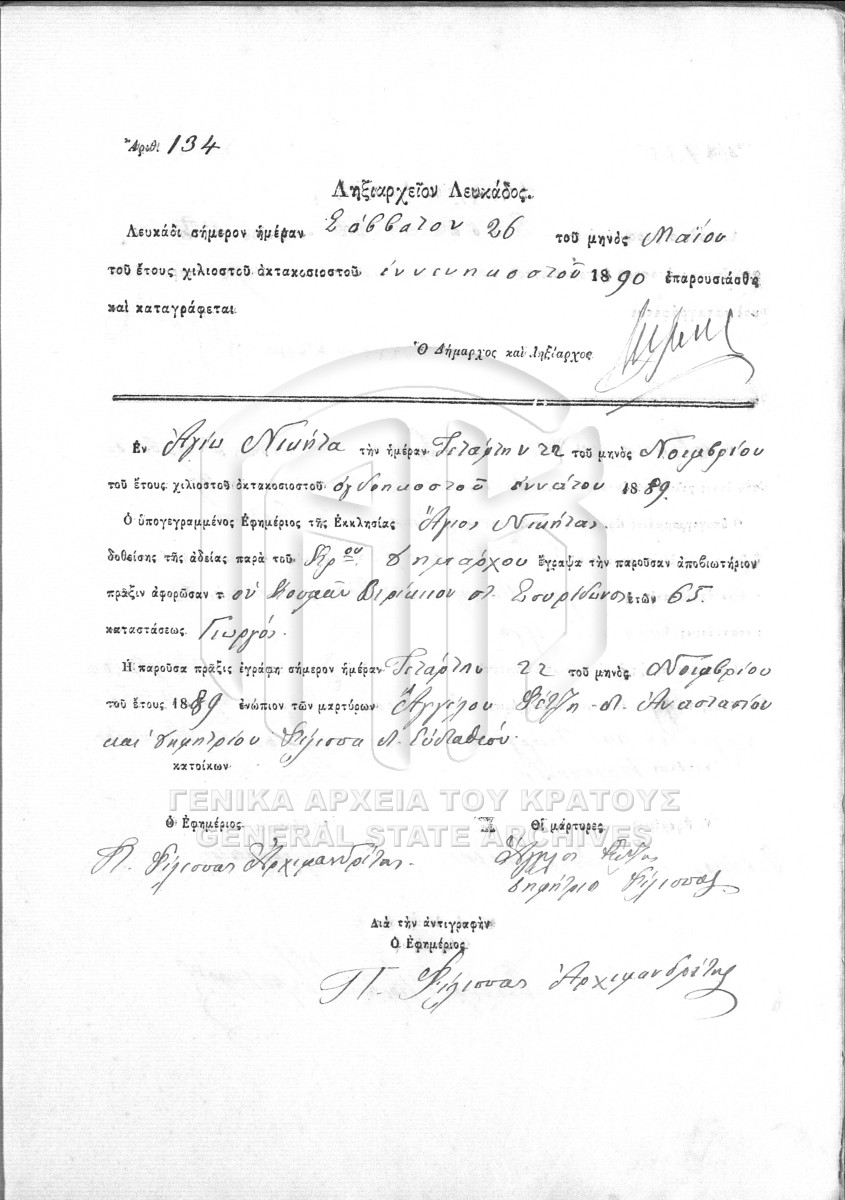 Ἀριθ. 134
Ληξιαρχεῖον Λευκάδος.
Λευκάδι σήμερον ἡμέραν Σάββατον 26 τοῦ μηνὸς Μαΐου
τοῦ ἔτους χιλιοστοῦ ὀκτακοσιοστοῦ ἐννενηκοστοῦ 1890 ἐπαρουσιάσθη
καὶ καταγράφεται
Ὁ Δήμαρχος καὶ Ληξίαρχος
Ἐν Ἁγίῳ Νικήτα τὴν ἡμέραν Τετάρτην 22 τοῦ μηνὸς Νοεμβρίου
τοῦ ἔτους χιλιοστοῦ ὀκτακοσιοστοῦ ὀγδοηκοστοῦ ἐννάτου 1889.
Ὁ ὑπογεγραμμένος Ἐφημέριος τῆς Ἐκκλησίας Ἅγιος Νικήτας
δοθείσης τῆς ἀδείας παρὰ τοῦ Κρ.ου Δημάρχου ἔγραψα τὴν παροῦσαν ἀποβιωτήριον
πρᾶξιν ἀφορῶσαν τὸν Σπυρίδωνος ἐτῶν 65.
καταστάσεως Γιωργός.
Ἡ παροῦσα πρᾶξις ἐγράφη σήμερον ἡμέραν Τετάρτην 22 τοῦ μηνὸς Νοεμβρίου
τοῦ ἔτους 1889 ἐνώπιον τῶν μαρτύρων Ἀγγέλου Φέτζη Ἀναστασίου
καὶ Δημητρίου Φίλιππα Εὐσταθίου
κατοίκων
ΓΕΝΙΚΑ ΑΡΧΕΙΑ ΤΟΥ ΚΡΑΤΟΥΣ
GENERAL STATE ARCHIVES
Ὁ Ἐφημέριος Οἱ μάρτυρες
Π. Φίλιππας Ἀρχιμανδρίτης Ἄγγελος Φέτζης
Δημήτριο Φίλιππας
Διὰ τὴν ἀντιγραφὴν
Ὁ Ἐφημέριος
Π. Φίλιππας Ἀρχιμανδρίτης